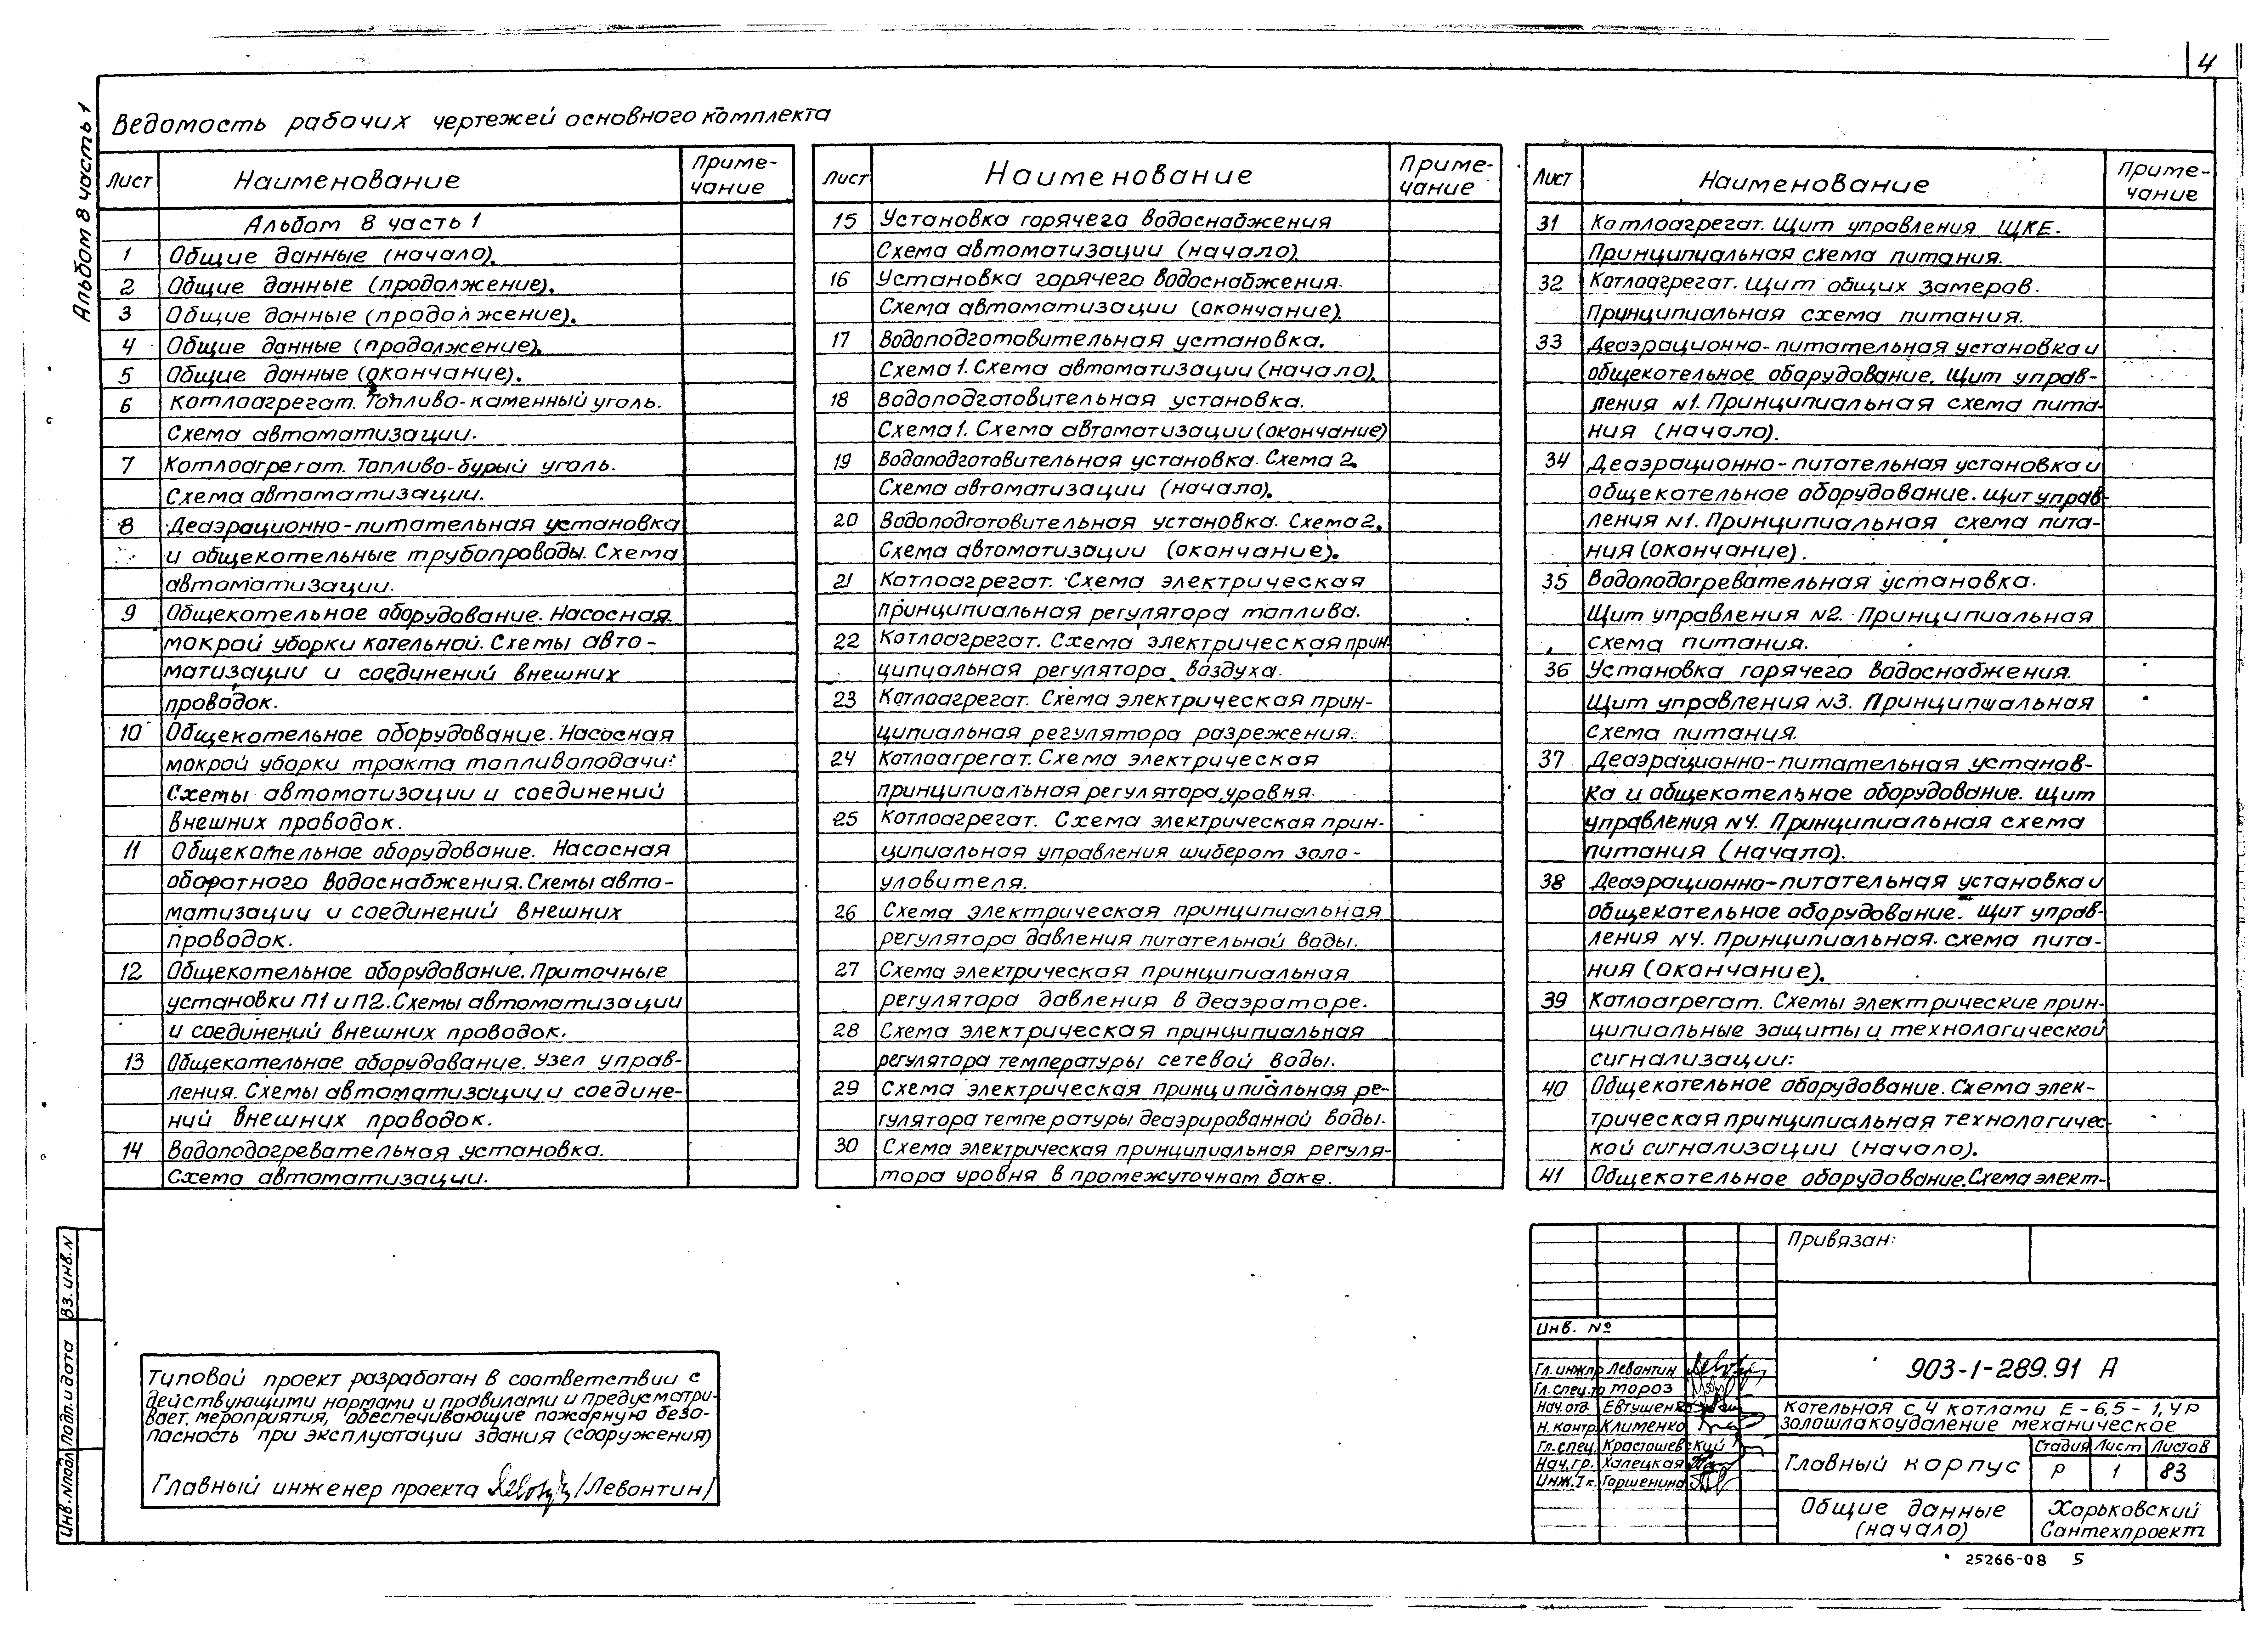 4
Альбом 8 часть 1
Ведомость рабочих чертежей основного комплекта
Лист Наименование Приме-
чание
Альбом 8 часть 1
1 Общие данные (начало).
2 Общие данные (продолжение).
3 Общие данные (продолжение).
4 Общие данные (продолжение).
5 Общие данные (окончание).
6 Котлоагрегат. Топливо-каменный уголь.
Схема автоматизации.
7 Котлоагрегат. Топливо-бурый уголь.
Схема автоматизации.
8 Деаэрационно-питательная установка
и общекотельные трубопроводы. Схема
автоматизации.
9 Общекотельное оборудование. Насосная
мокрой уборки котельной. Схемы авто-
матизации и соединений внешних
проводок.
10 Общекотельное оборудование. Насосная
мокрой уборки тракта топливоподачи.
Схемы автоматизации и соединений
внешних проводок.
11 Общекотельное оборудование. Насосная
оборотного водоснабжения. Схемы авто-
матизации и соединений внешних
проводок.
12 Общекотельное оборудование. Приточные
установки П1 и П2. Схемы автоматизации
и соединений внешних проводок.
13 Общекотельное оборудование. Узел управ-
ления. Схемы автоматизации и соедине-
ний внешних проводок.
14 Водоподогревательная установка.
Схема автоматизации.
Лист Наименование Приме-
чание
15 Установка горячего водоснабжения
Схема автоматизации (начало)
16 Установка горячего водоснабжения.
Схема автоматизации (окончание).
17 Водоподготовительная установка.
Схема 1. Схема автоматизации (начало).
18 Водоподготовительная установка.
Схема 1. Схема автоматизации (окончание)
19 Водоподготовительная установка. Схема 2.
Схема автоматизации (начало).
20 Водоподготовительная установка. Схема 2.
Схема автоматизации (окончание).
21 Котлоагрегат. Схема электрическая
принципиальная регулятора топлива.
22 Котлоагрегат. Схема электрическая прин-
ципиальная регулятора воздуха.
23 Котлоагрегат. Схема электрическая прин-
ципиальная регулятора разрежения.
24 Котлоагрегат. Схема электрическая
принципиальная регулятора уровня.
25 Котлоагрегат. Схема электрическая прин-
ципиальная управления шибером золо-
уловителя.
26 Схема электрическая принципиальная
регулятора давления питательной воды.
27 Схема электрическая принципиальная
регулятора давления в деаэраторе.
28 Схема электрическая принципиальная
регулятора температуры сетевой воды.
29 Схема электрическая принципиальная ре-
гулятора температуры деаэрированной воды.
30 Схема электрическая принципиальная регуля-
тора уровня в промежуточном баке.
Лист Наименование Приме-
чание
31 Котлоагрегат. Щит управления ЩКЕ.
Принципиальная схема питания.
32 Котлоагрегат. Щит общих замеров.
Принципиальная схема питания.
33 Деаэрационно-питательная установка и
общекотельное оборудование. Щит управ-
ления N1. Принципиальная схема пита-
ния (начало).
34 Деаэрационно-питательная установка и
общекотельное оборудование. Щит управ-
ления N1. Принципиальная схема пита-
ния (окончание).
35 Водоподогревательная установка.
Щит управления N2. Принципиальная
схема питания.
36 Установка горячего водоснабжения.
Щит управления N3. Принципиальная
схема питания.
37 Деаэрационно-питательная установ-
ка и общекотельное оборудование. Щит
управления N4. Принципиальная схема
питания (начало).
38 Деаэрационно-питательная установка и
общекотельное оборудование. Щит управ-
ления N4. Принципиальная схема пита-
ния (окончание).
39 Котлоагрегат. Схемы электрические прин-
ципиальные защиты и технологической
сигнализации.
40 Общекотельное оборудование. Схема элек-
трическая принципиальная технологичес-
кой сигнализации (начало).
41 Общекотельное оборудование. Схема элект-
Типовой проект разработан в соответствии с
действующими нормами и правилами и предусматри-
вает мероприятия, обеспечивающие пожарную безо-
пасность при эксплуатации здания (сооружения)
Главный инженер проекта /Левонтин/
Инв. N подл. Подп. и дата Вз. инв. N
Привязан:
Инв. №
Гл. инж. пр Левонтин
Гл. спец. то Мороз
Нач. отд. Евтушенко
Н. контр. Клименко
Гл. спец. Красношевский
Нач. гр. Халецкая
Инж. I к. Горшенина
903-1-289.91 А
Котельная с 4 котлами Е-6,5-1,4Р
Золошлакоудаление механическое
Главный корпус
Стадия Лист Листов
Р 1 83
Общие данные
(начало)
Харьковский
Сантехпроект
25266-08 5